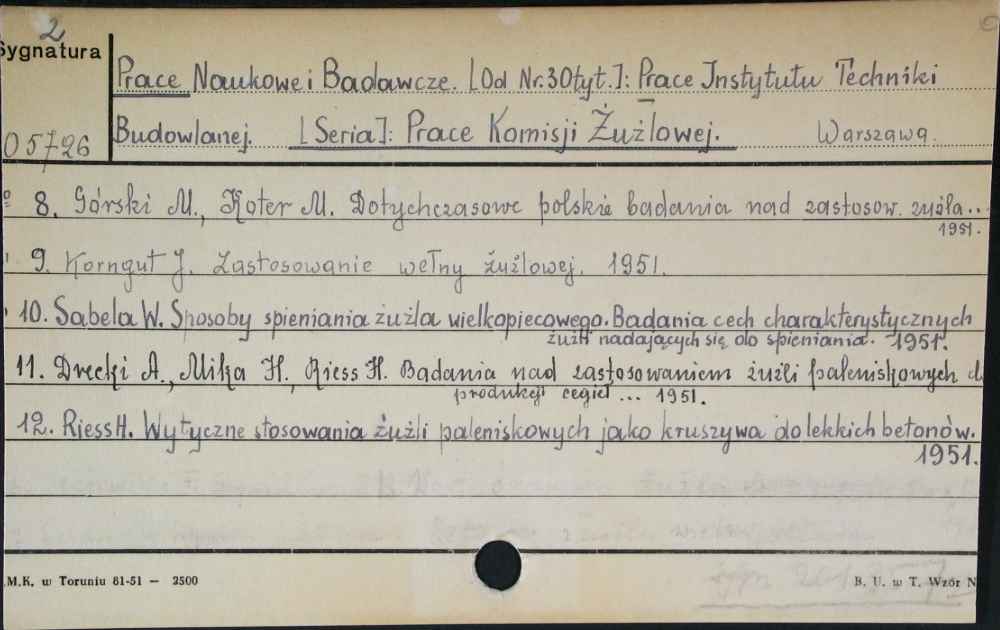 2
Sygnatura
Prace Naukowe i Badawcze. [Od Nr.30 tyt.]: Prace Instytutu Techniki
Budowlanej. [Seria]: Prace Komisji Żużlowej. Warszawa.
05726
8. Górski M., Koter M. Dotychczasowe polskie badania nad zastosow. żużla...
1951.
9. Korngut J. Zastosowanie wełny żużlowej. 1951.
10. Sabela W. Sposoby spieniania żużla wielkopiecowego. Badania cech charakterystycznych
żużli nadających się do spieniania. 1951.
11. Drecki A., Mika H., Riess H. Badania nad zastosowaniem żużli paleniskowych d
produkcji cegieł... 1951.
12. Riess H. Wytyczne stosowania żużli paleniskowych jako kruszywa do lekkich betonów.
1951.
.M.K. w Toruniu 81-51 — 2500
B. U. w T. Wzór N